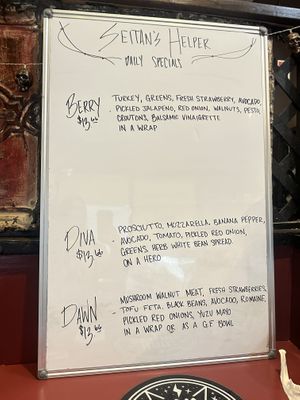 SEITAN'S HELPER
DAILY SPECIALS
BERRY
$13
TURKEY, GREENS, FRESH STRAWBERRY, AVOCADO,
PICKLED JALAPEÑO, RED ONION, WALNUTS, PESTO
CROUTONS, BALSAMIC VINAIGRETTE
IN A WRAP
DIVA
$13
PROSCIUTTO, MOZZARELLA, BANANA PEPPER,
AVOCADO, TOMATO, PICKLED RED ONION,
GREENS, HERB WHITE BEAN SPREAD
ON A HERO
DAWN
$13
MUSHROOM WALNUT MEAT, FRESH STRAWBERRIES,
TOFU FETA, BLACK BEANS, AVOCADO, ROMAINE,
PICKLED RED ONIONS, YUZU MAYO
IN A WRAP OR AS A G.F. BOWL